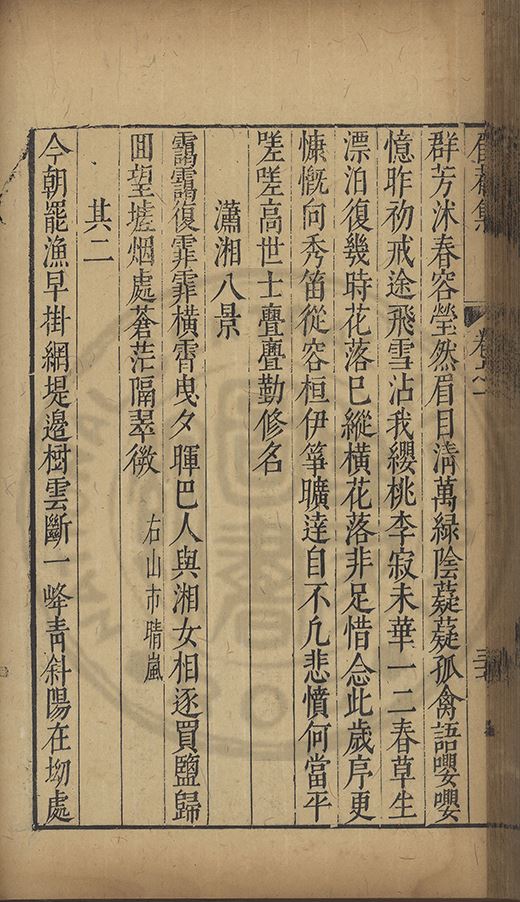 卷六
群芳沐春容瑩然眉目清萬緑陰薿薿孤禽語嚶嚶
憶昨初戒途飛雪沾我纓桃李寂未華一二春草生
漂泊復幾時花落巳縱橫花落非足惜念此歲序更
慷慨向秀笛從容桓伊箏曠逹自不凢悲憤何當平
嗟嗟高世士亹亹勤修名
瀟湘八景
靄靄復霏霏橫霄曳夕暉巴人與湘女相逐買鹽歸
囬望墟烟處蒼茫隔翠微
右山市晴嵐
其二
今朝罷漁早掛網堤邉樹雲斷一峰靑斜陽在坳處